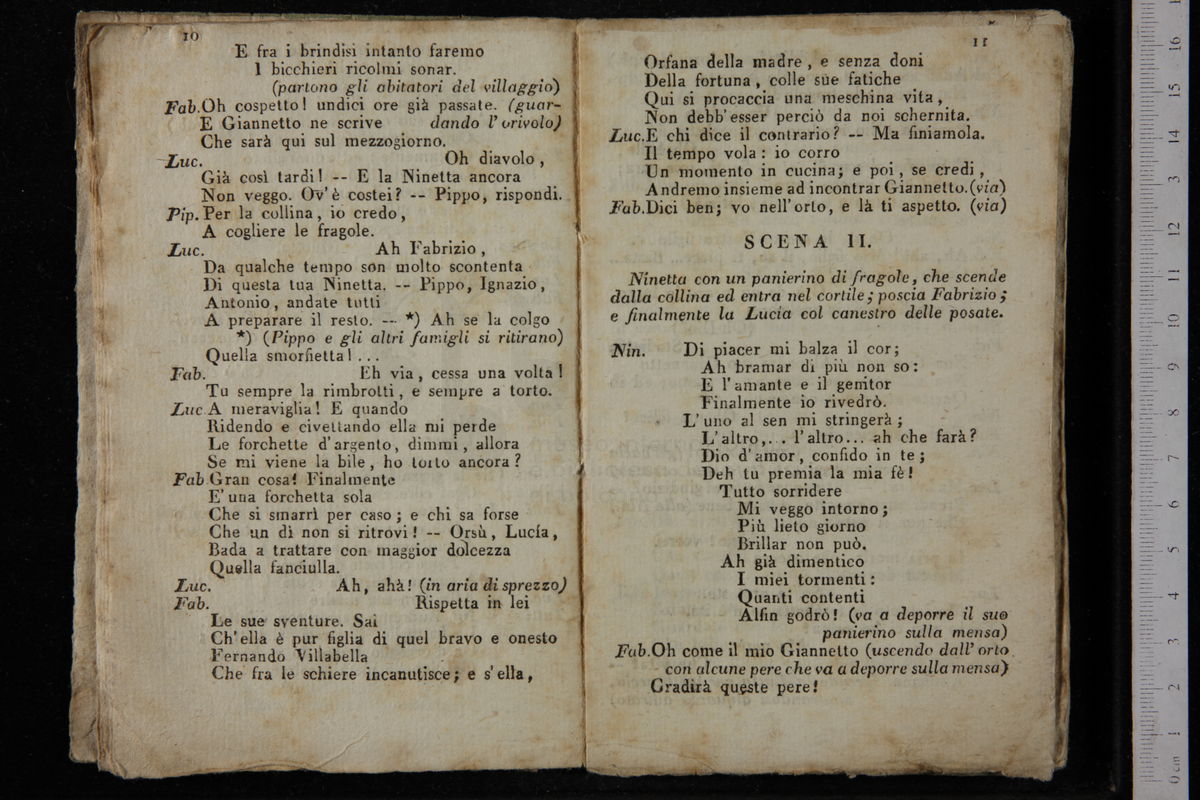 10
E fra i brindisi intanto faremo
I bicchieri ricolmi sonar.
(partono gli abitatori del villaggio)
Fab. Oh cospetto! undici ore già passate. (guar-
E Giannetto ne scrive dando l'orivolo)
Che sarà qui sul mezzogiorno.
Luc. Oh diavolo,
Già così tardi! -- E la Ninetta ancora
Non veggo. Ov'è costei? -- Pippo, rispondi.
Pip. Per la collina, io credo,
A cogliere le fragole.
Luc. Ah Fabrizio,
Da qualche tempo son molto scontenta
Di questa tua Ninetta. -- Pippo, Ignazio,
Antonio, andate tutti
A preparare il resto. -- *) Ah se la colgo
*) (Pippo e gli altri famigli si ritirano)
Quella smorfietta! ...
Fab. Eh via, cessa una volta!
Tu sempre la rimbrotti, e sempre a torto.
Luc. A meraviglia! E quando
Ridendo e civettando ella mi perde
Le forchette d'argento, dimmi, allora
Se mi viene la bile, ho torto ancora?
Fab. Gran cosa! Finalmente
E' una forchetta sola
Che si smarrì per caso; e chi sa forse
Che un dì non si ritrovi! -- Orsù, Lucía,
Bada a trattare con maggior dolcezza
Quella fanciulla.
Luc. Ah, ahà! (in aria di sprezzo)
Fab. Rispetta in lei
Le sue sventure. Sai
Ch'ella è pur figlia di quel bravo e onesto
Fernando Villabella
Che fra le schiere incanutisce; e s'ella,
11
Orfana della madre, e senza doni
Della fortuna, colle sue fatiche
Qui si procaccia una meschina vita,
Non debb'esser perciò da noi schernita.
Luc. E chi dice il contrario? -- Ma finiamola.
Il tempo vola: io corro
Un momento in cucina; e poi, se credi,
Andremo insieme ad incontrar Giannetto. (via)
Fab. Dici ben; vo nell'orto, e là ti aspetto. (via)
SCENA II.
Ninetta con un panierino di fragole, che scende
dalla collina ed entra nel cortile; poscia Fabrizio;
e finalmente la Lucia col canestro delle posate.
Nin. Di piacer mi balza il cor;
Ah bramar di più non so:
E l'amante e il genitor
Finalmente io rivedrò.
L'uno al sen mi stringerà;
L'altro,... l'altro... ah che farà?
Dio d'amor, confido in te;
Deh tu premia la mia fè!
Tutto sorridere
Mi veggo intorno;
Più lieto giorno
Brillar non può.
Ah già dimentico
I miei tormenti:
Quanti contenti
Alfin godrò! (va a deporre il suo
panierino sulla mensa)
Fab. Oh come il mio Giannetto (uscendo dall'orto
con alcune pere che va a deporre sulla mensa)
Gradirà queste pere!
0 cm 1 2 3 4 5 6 7 8 9 10 11 12 13 14 15 16